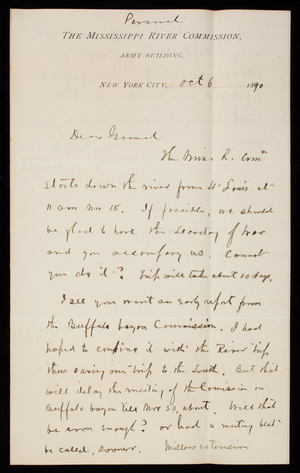 Personal
THE MISSISSIPPI RIVER COMMISSION,
ARMY BUILDING,
NEW YORK CITY, Oct 6 1890
Dear General
The Miss R. Comn
starts down the river from St Louis at
11 am Nov 18. If possible, we should
be glad to have the Secretary of War
and you accompany us. Cannot
you do it? Trip will take about 10 days.
I see you want an early report from
the Buffalo bayou Commission. I had
hoped to combine it with the River trip
thus saving one trip to the South. But that
will delay the meeting of the Comission on
Buffalo bayou till Nov 30, about. Will that
be soon enough? or had a meeting best
be called, sooner. Millers extension